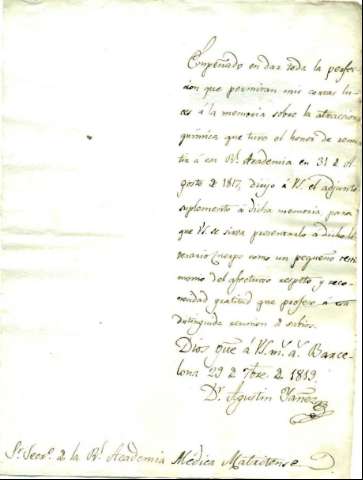 Empeñado en dar toda la perfec-
cion que permitan mis cortas lu-
ces á la memoria sobre la atraccion
quimica que tuve el honor de remi-
tir á esa Rl. Academia en 31 de A
gosto de 1817, dirijo á VS. el adjunto
suplemento á dicha memoria para
que VS. se sirva presentarlo á dicho Li-
terario Cuerpo como un pequeño testi-
monio del afectuoso respeto, y reco-
gratitud que profeso á esa
distinguida reunion de sabios.
Dios gue. á VS. ms. as. Barce-
lona 29 de 7bre. de 1819.
Dr. Agustin Yañez
Sr. Secro. de la Rl. Academia Médica Matritense